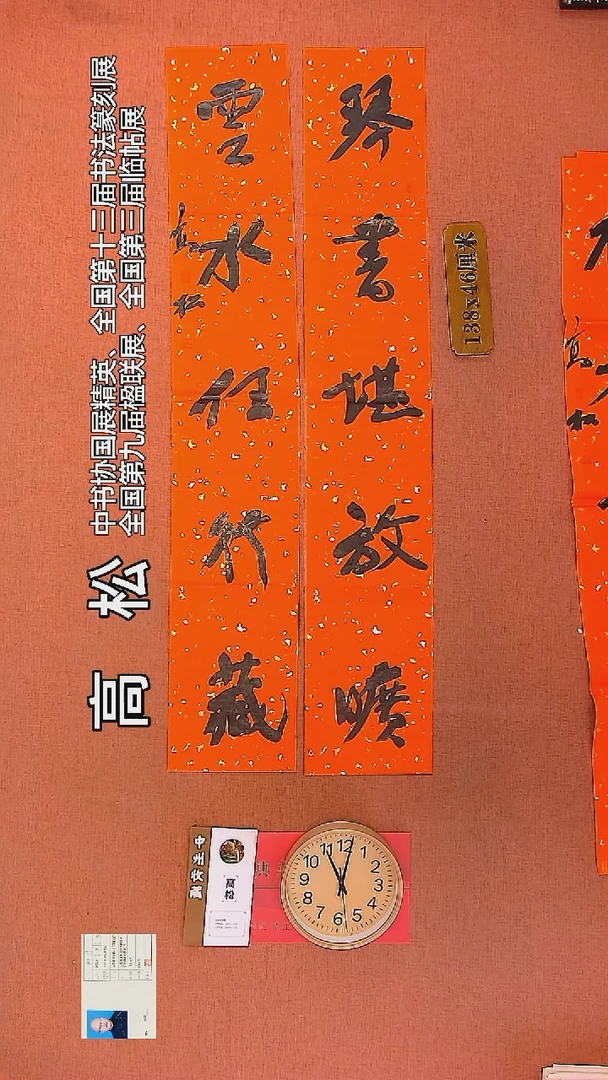 高 松
中书协国展精英、全国第十三届书法篆刻展
全国第九届楹联展、全国第三届临帖展
琴書堪放曠
雲水任行藏
高松
138x46厘米
中州收藏
高松
12
1
2
3
4
5
6
7
8
9
10
11